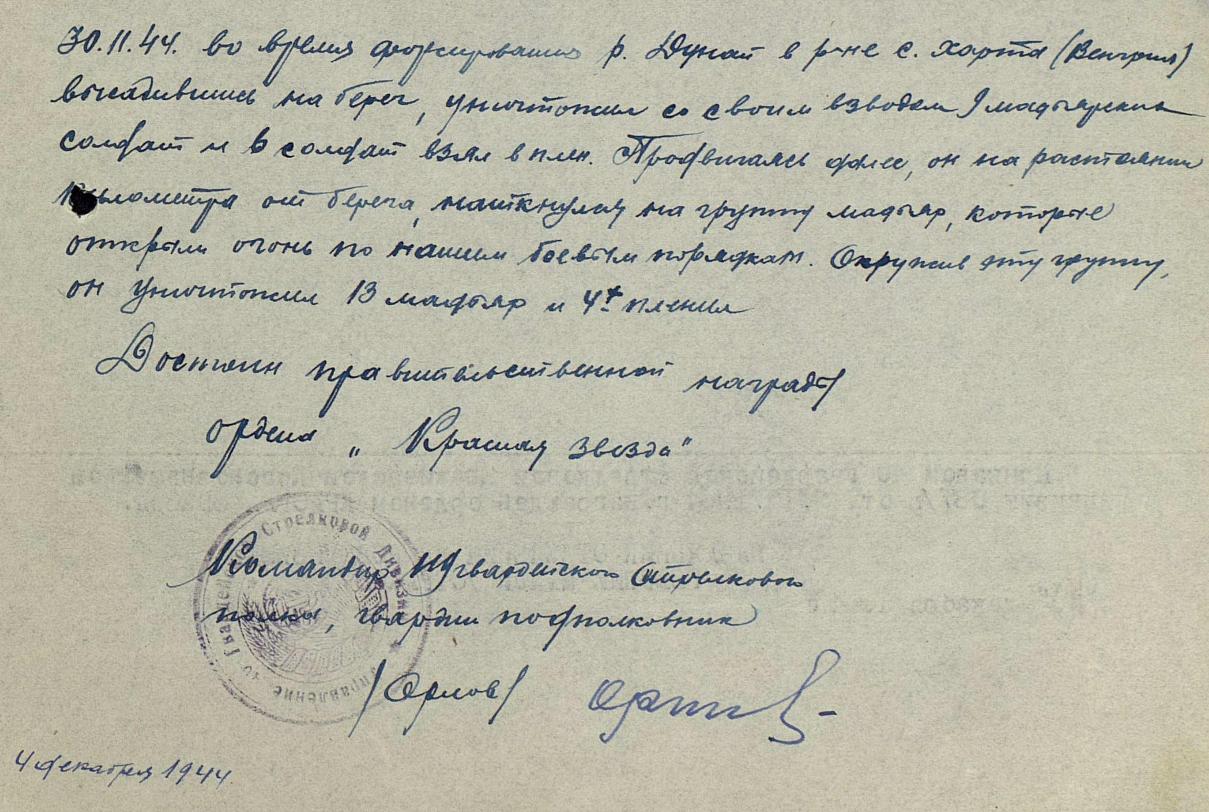 30.11.44. во время форсирования р. Дунай в р-не с. Харта (Венгрия)
высадившись на берег, уничтожил со своим взводом 9 мадьярских
солдат и 6 солдат взял в плен. Продвигаясь далее, он на растоянии
километра от берега, наткнулся на группу мадьяр, которые
открыли огонь по нашим боевым порядкам. Окружив эту группу,
он уничтожил 13 мадьяр и 4х пленил
Достоин правительственной награды
ордена „Красная звезда"
Стрелковой Дивизии
Командир гвардейского стрелкового
полка, гвардии подполковник
Управление Гвардейской
/Орлов/
4 декабря 1944.